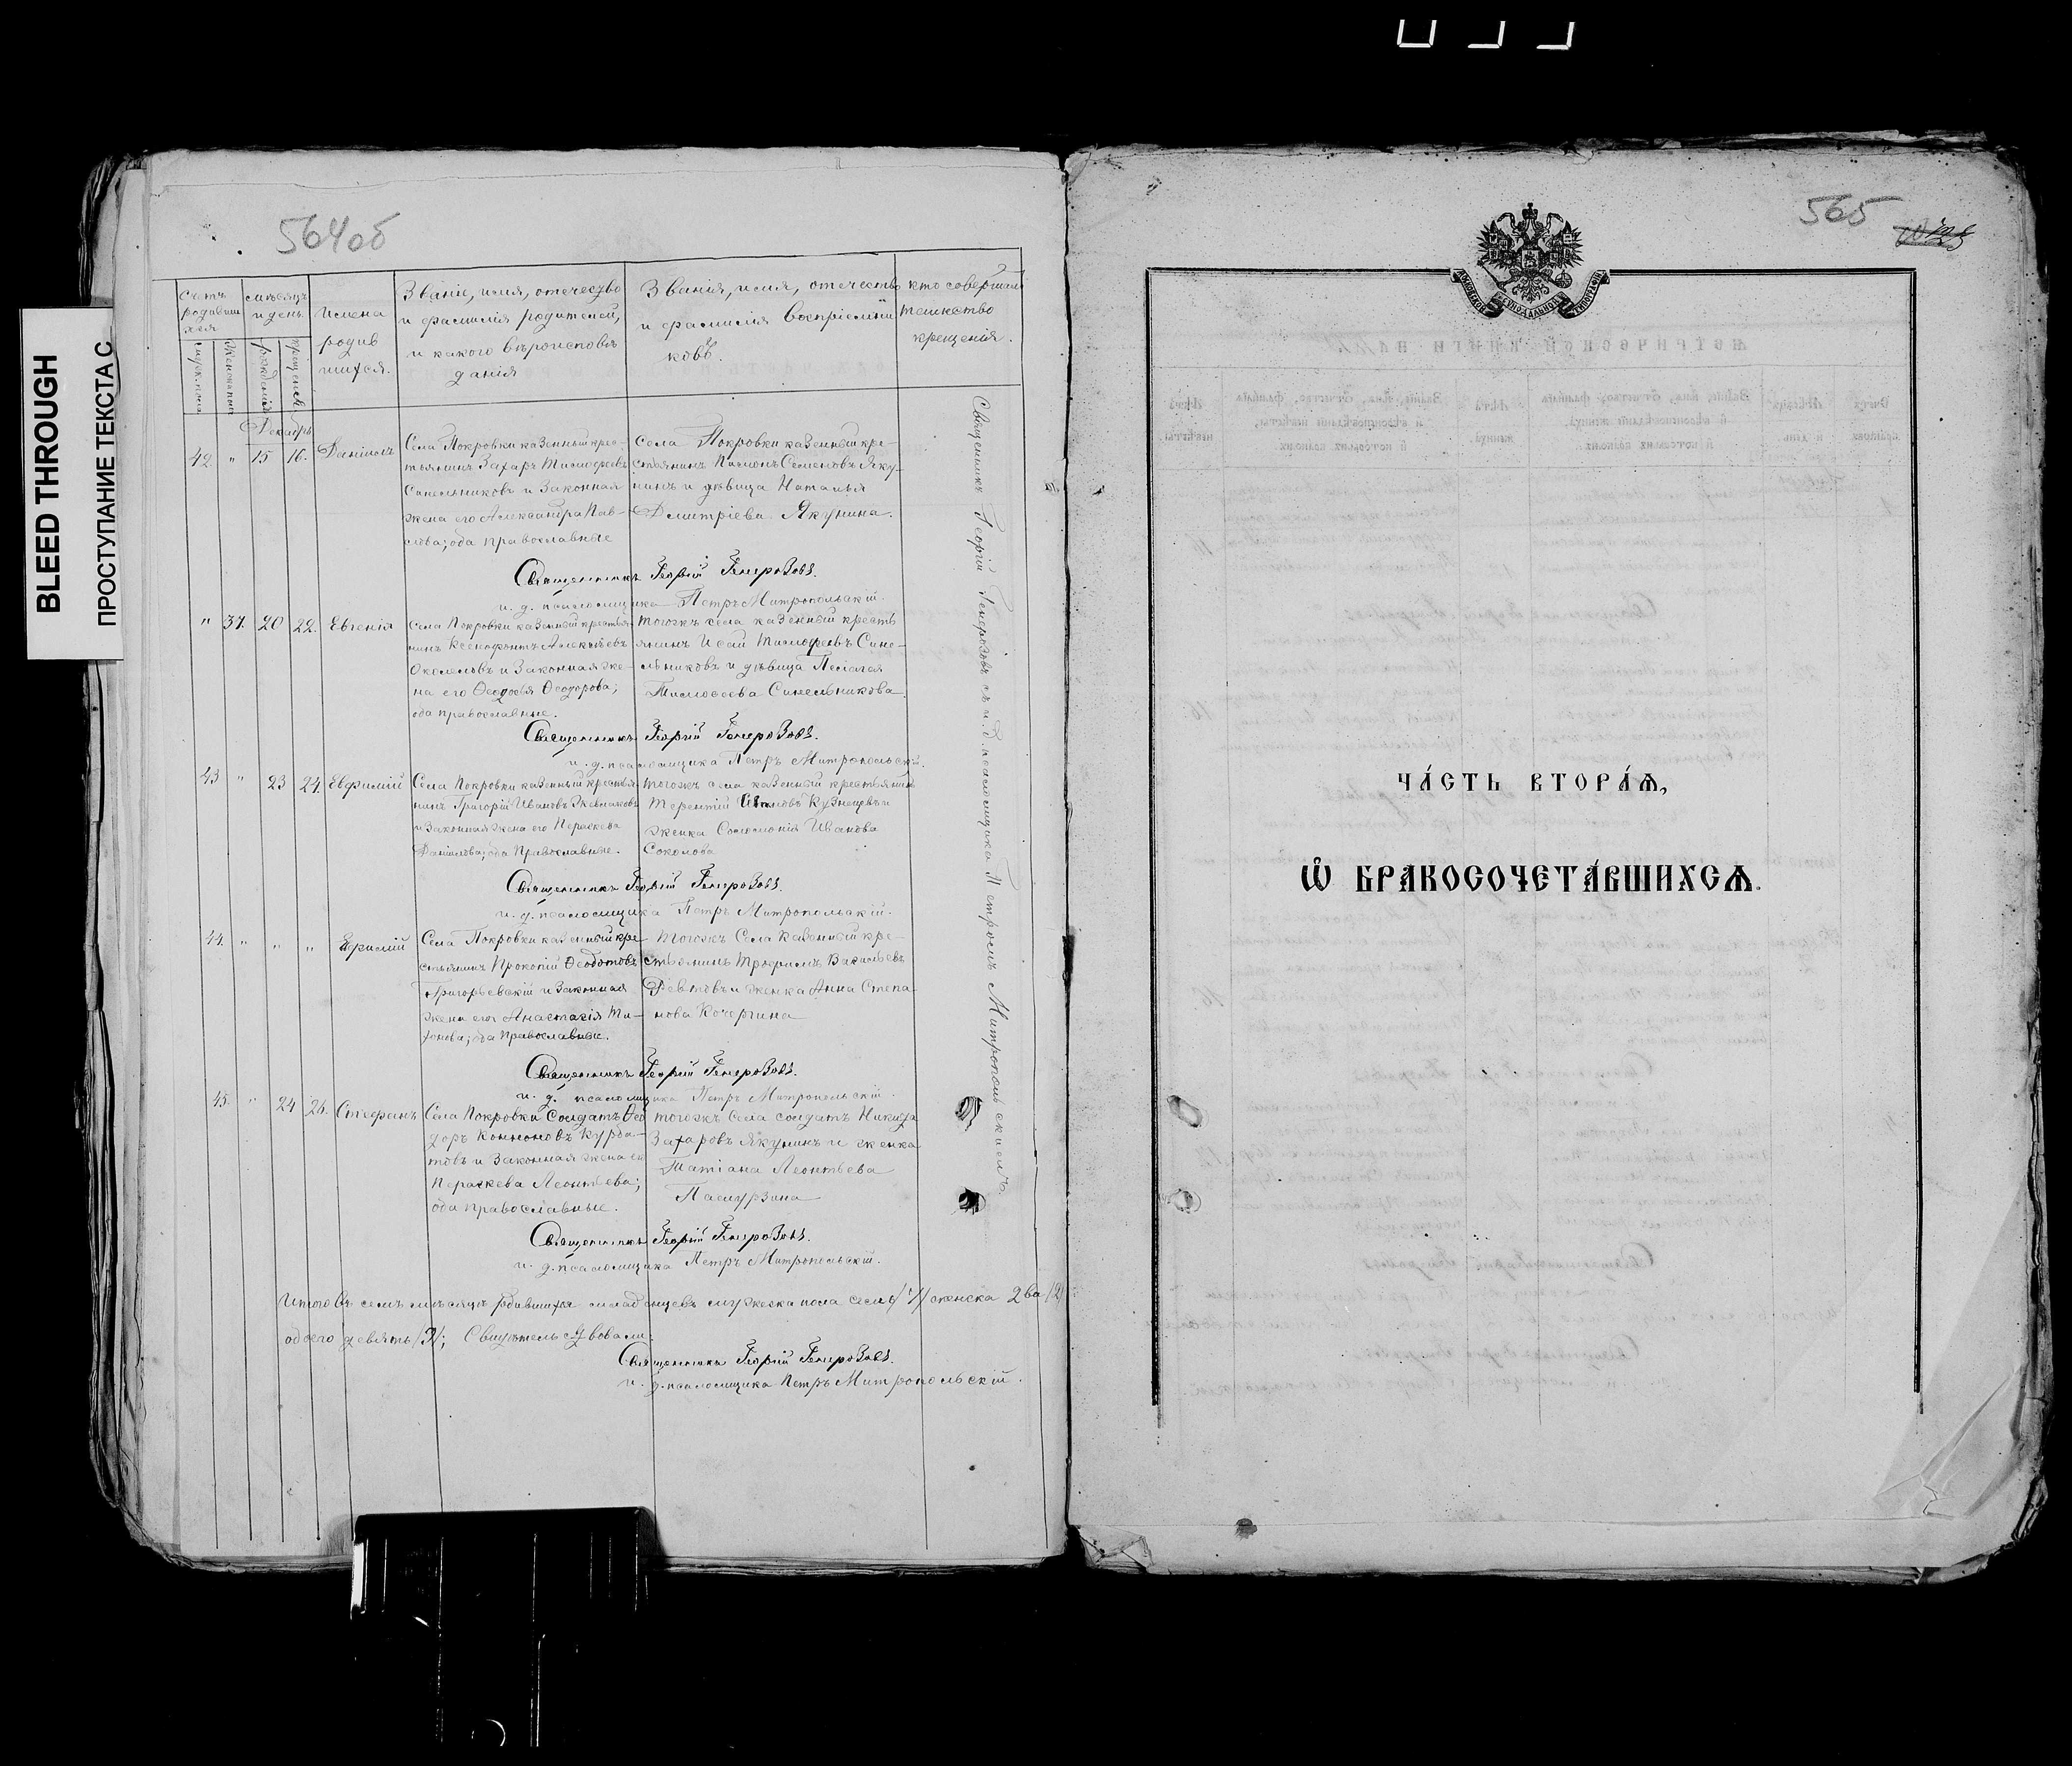 BLEED THROUGH
ПРОСТУПАНИЕ ТЕКСТА С
564об
Счетъ родившихся
мѣсяцъ и день.
Имена родившихся.
Званіе, имя, отечество
и фамилія родителей,
и какого вѣроисповѣ
данія
Званія, имя, отечество
и фамилія воспріемни
ковъ.
кто совершилъ
таинство
крещенія.
мужск. пола
женск. пола
рожденія
крещенія
Декабрь
42. " 15 16. Даніилъ
Села Покровки казенный крес-
тьянинъ Захаръ Тимофеевъ
Синельниковъ и законная
жена его Александра Пав-
лова; оба православные
Села Покровки казенный кре-
стьянинъ Семеновъ Яку-
нинъ и дѣвица Наталья
Дмитріева Якунина.
Священникъ Георгій Генерозовъ.
и. д. псаломщика Петръ Митропольскій.
" 37. 20 22. Евгенія
Села Покровки казенный крестья-
нинъ Ксенофонтъ Алексѣевъ
и законная же-
на его Ѳеодосья Ѳеодорова;
оба православные.
Тогожъ села казенный кресть
янинъ Исай Тимофеевъ Сине-
льниковъ и дѣвица Пелагея
Тимофеева Синельникова
Священникъ Георгій Генерозовъ.
и. д. псаломщика Петръ Митропольскій.
43 " 23 24. Евфимій
Села Покровки казенный крестья-
нинъ Григорій Ивановъ
и законная жена его Параскева
Данилова; оба православные.
Тогожъ села казенный крестьянинъ
Терентій Ивановъ Кузнецовъ и
женка Соломонія Иванова
Соколова
Священникъ Георгій Генерозовъ.
и. д. псаломщика Петръ Митропольскій.
44. " " " Ефимій
Села Покровки казенный кре
стьянинъ Прокопій Ѳеодотовъ
Григорьевскій и законная
жена его Анастасія Ти-
хонова; оба православные.
Тогожъ села казенный кре-
стьянинъ Трофимъ Васильевъ
и женка Анна Степа-
нова Кочергина
Священникъ Георгій Генерозовъ.
и. д. псаломщика Петръ Митропольскій.
45. " 24 26. Стефанъ
Села Покровки солдатъ Ѳео
доръ Кононовъ Курба-
товъ и законная жена его
Параскева Леонтьева;
оба православные.
тогожъ села солдатъ Никита
Захаровъ Якунинъ и женка
Татіана Леонтьева
Священникъ Георгій Генерозовъ.
и. д. псаломщика Петръ Митропольскій.
Священникъ Георгій Генерозовъ съ и. д. псаломщика Петромъ Митропольскимъ.
Итого въ семъ мѣсяцѣ родившихся младенцевъ мужеска пола семь /7/ женска два /2/
обоего девять /9/; Свидѣтельствовали:
Священникъ Георгій Генерозовъ.
и. д. псаломщика Петръ Митропольскій.
565
МОСКОВСКОЙ СѴНОДАЛЬНОЙ ТИПОГРАФІИ
ЧА́СТЬ ВТОРА́Ѧ,
Ѽ БРАКОСОЧЕТА́ВШИХСѦ.